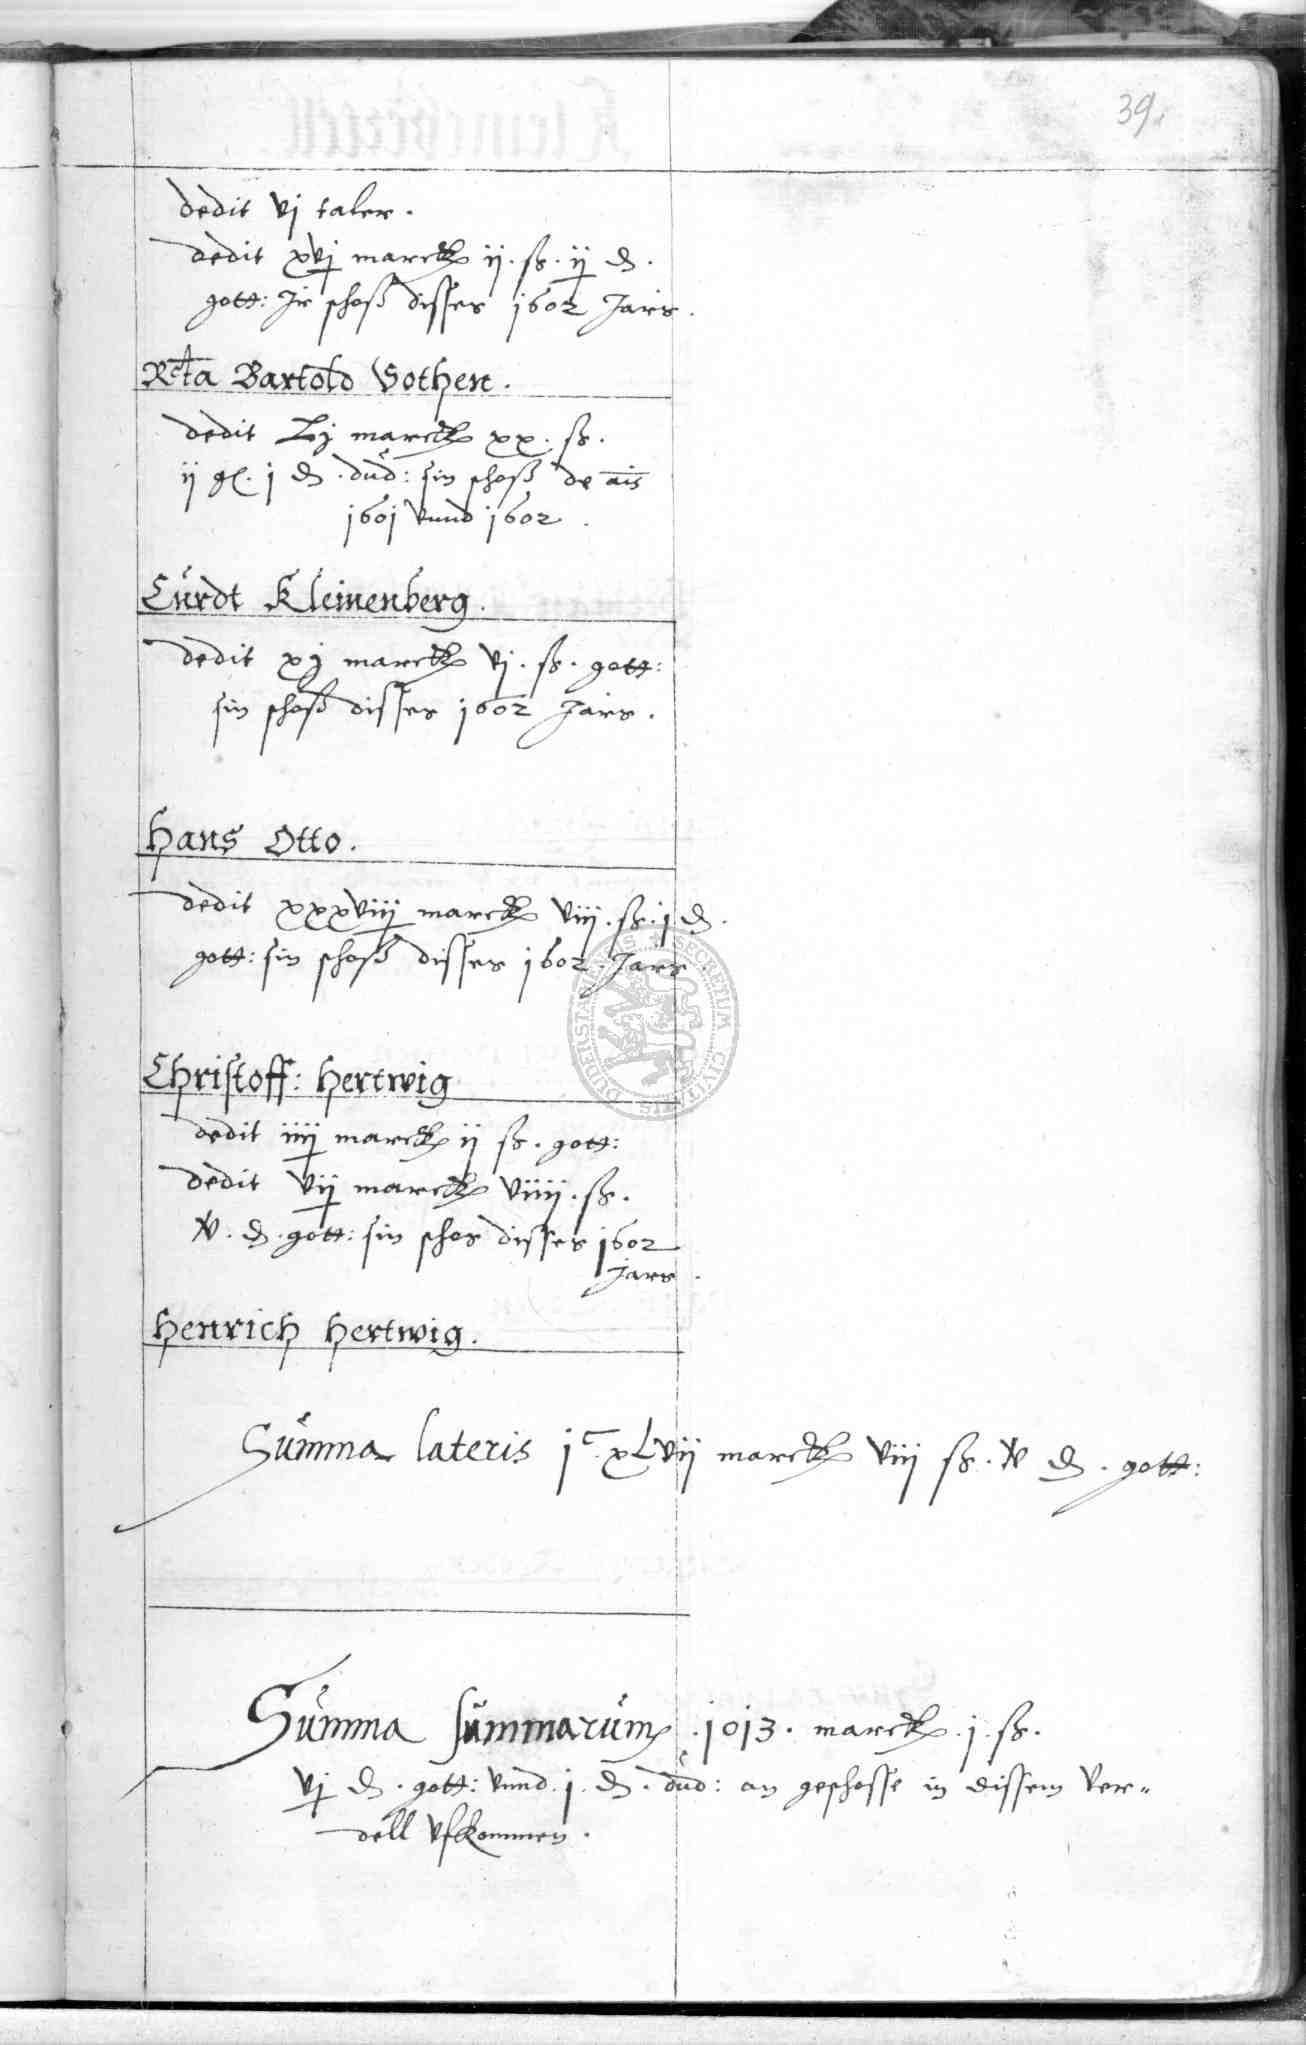 39.
dedit vj taler.
dedit xvj marck ij. ß. ij ₰.
gott: Jr schoß disses 1602 Jars.
Rcta Bartold Vothen.
dedit Lj marck xx. ß.
ij gl. j ₰. dud: sin schoß de ais
1601 vnnd 1602.
Curdt Kleinenberg.
dedit xj marck vj. ß. gott:
sin schoß disses 1602 Jars.
Hans Otto.
dedit xxxviij marck viij. ß. j ₰.
gott: sin schoß disses 1602. Jars.
SECRETUM CIVITATIS DUDERSTADENSIS
Christoff: Hertwig
dedit iiij marck ij ß. gott:
dedit vij marck viiij. ß.
v. ₰. gott: sin schos disses 1602
Jars.
Henrich Hertwig.
Summa lateris jc. xLvij marck viij ß. v ₰. gott:
Summa summarum .1013. marck. j. ß.
vj ₰. gott: vnnd. j. ₰. dud: an geschosse in dissem Ver-
dell vfkommen.